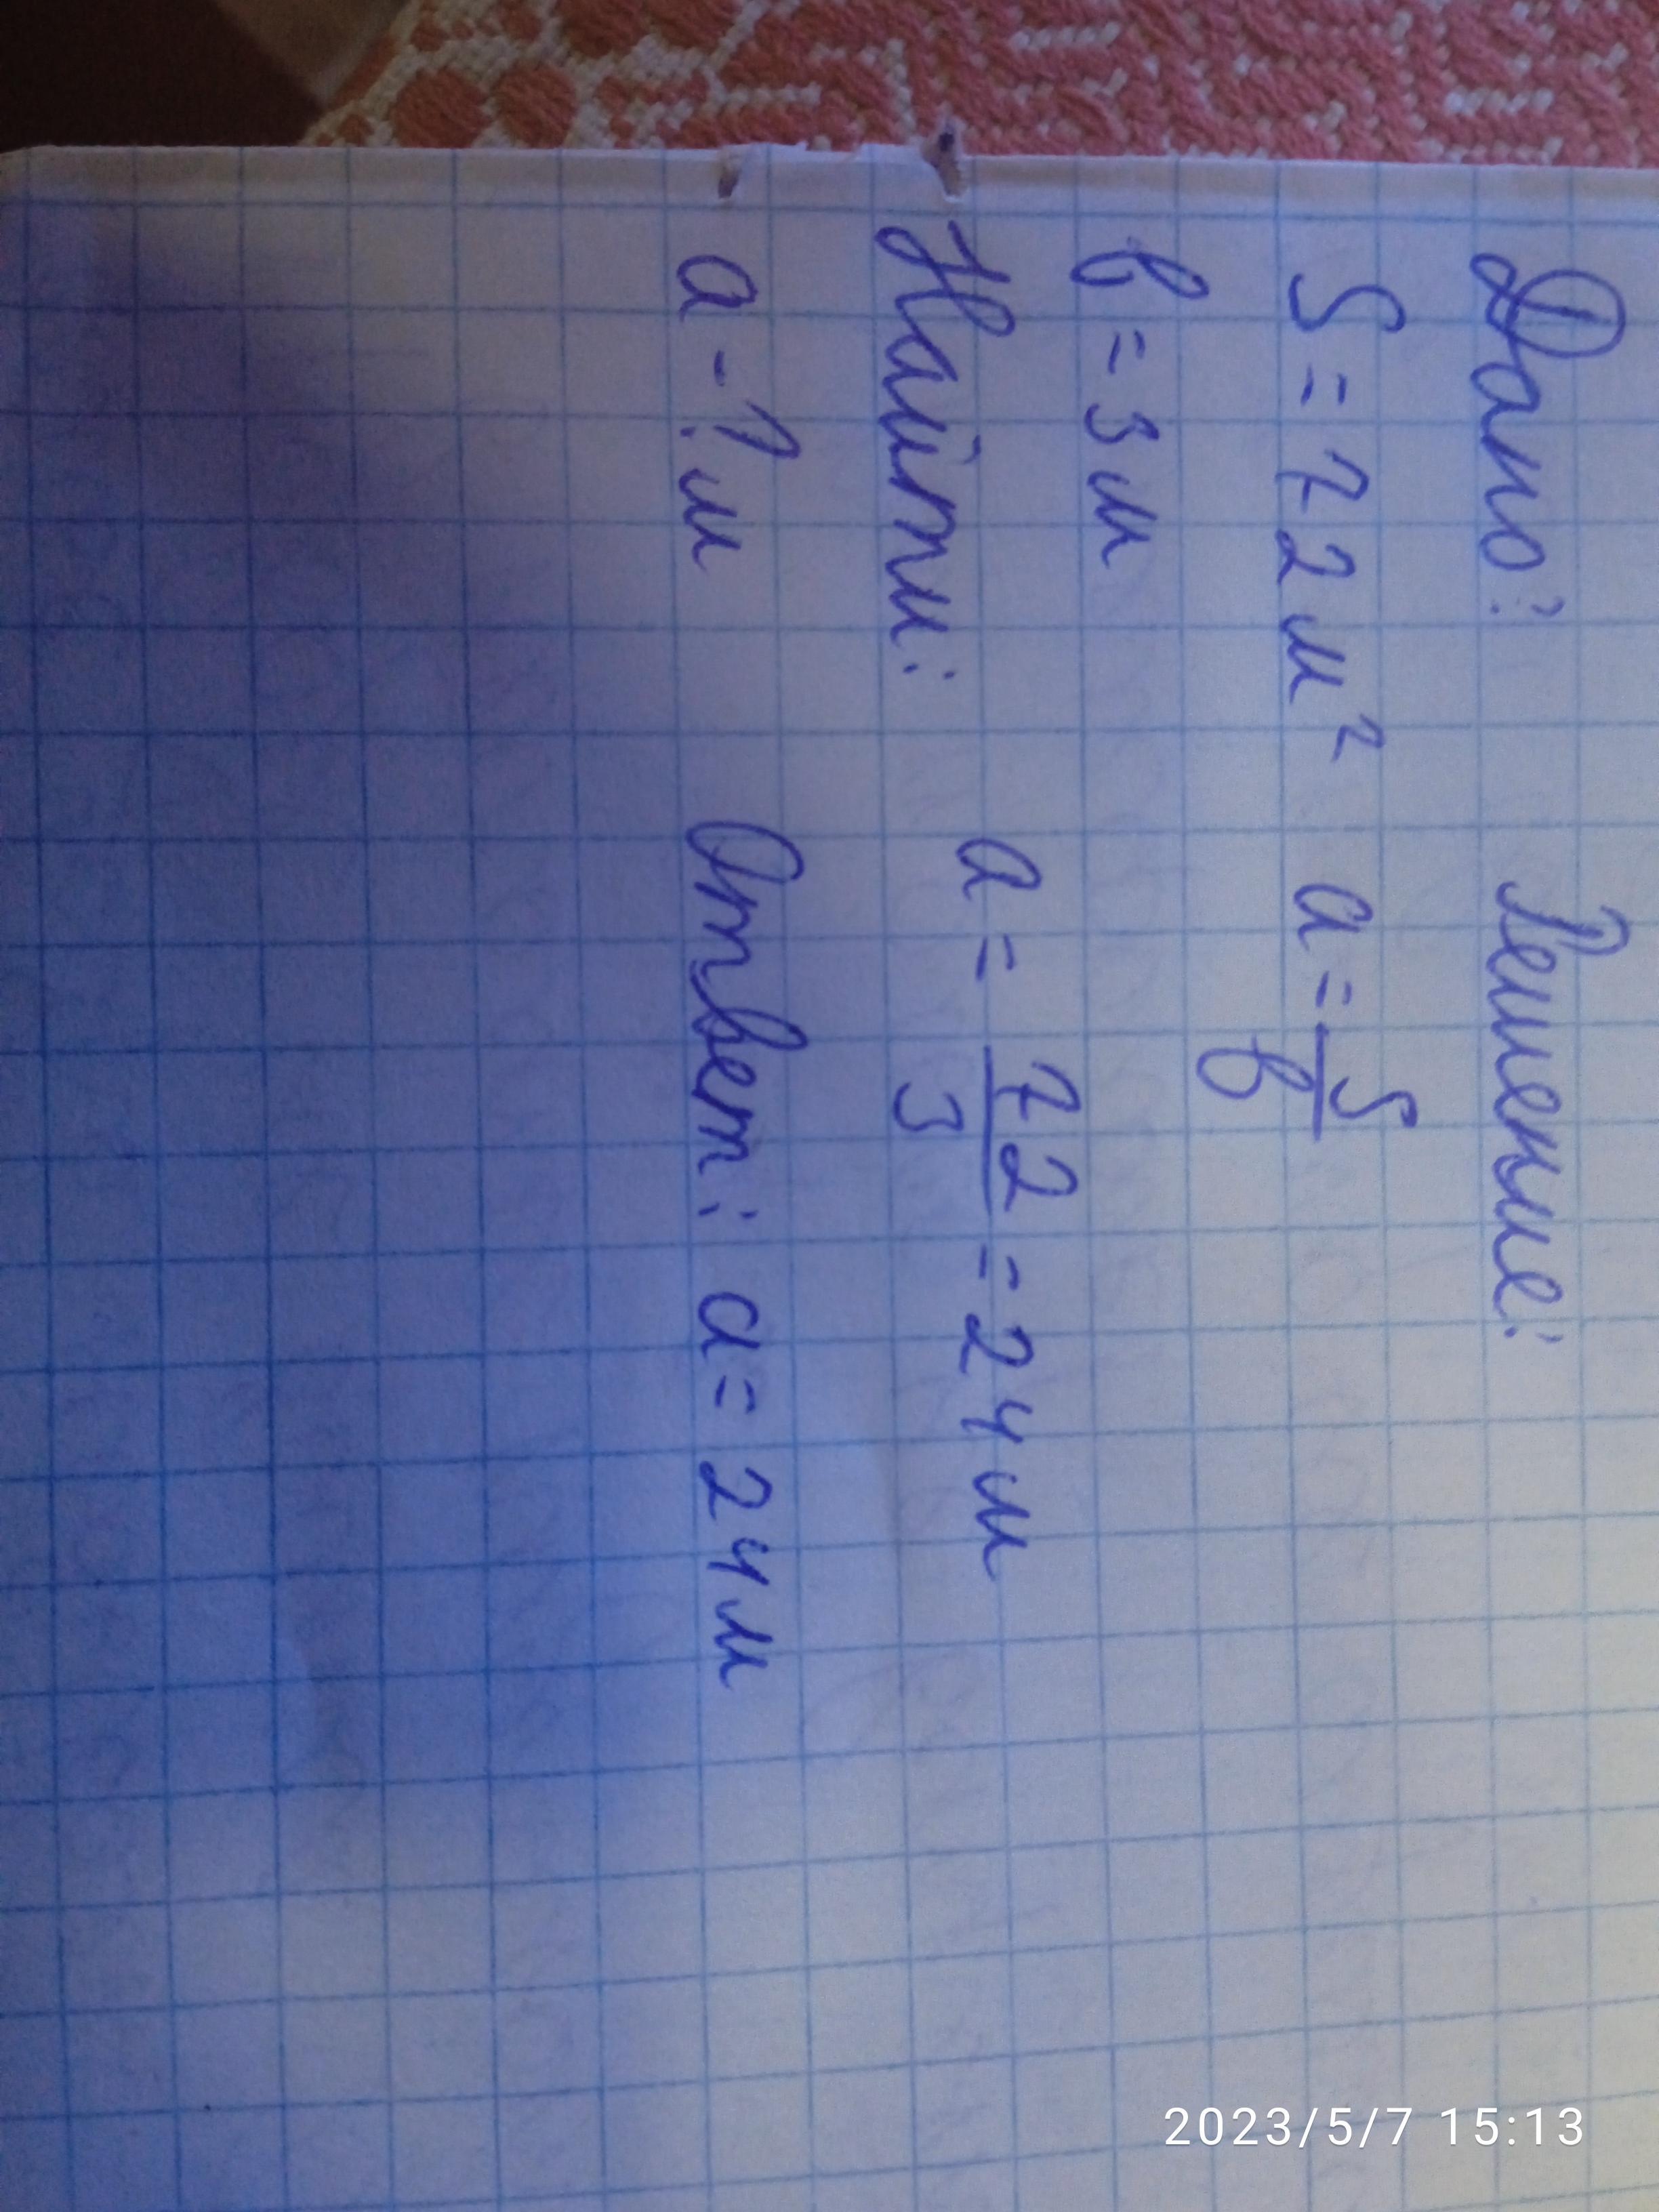 Дано: Решение:
S = 72 м² a = S/в
в = 3 м
Найти: a = 72/3 = 24 м
a - ? м Ответ: a = 24 м
2023/5/7 15:13